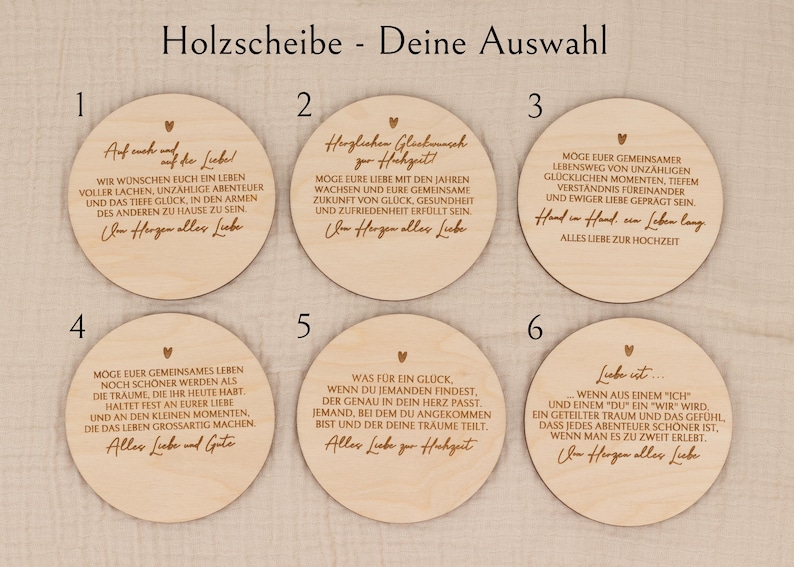 Holzscheibe - Deine Auswahl
1
Auf euch und
auf die Liebe!
WIR WÜNSCHEN EUCH EIN LEBEN
VOLLER LACHEN, UNZÄHLIGE ABENTEUER
UND DAS TIEFE GLÜCK, IN DEN ARMEN
DES ANDEREN ZU HAUSE ZU SEIN.
Von Herzen alles Liebe
2
Herzlichen Glückwunsch
zur Hochzeit!
MÖGE EURE LIEBE MIT DEN JAHREN
WACHSEN UND EURE GEMEINSAME
ZUKUNFT VON GLÜCK, GESUNDHEIT
UND ZUFRIEDENHEIT ERFÜLLT SEIN.
Von Herzen alles Liebe
3
MÖGE EUER GEMEINSAMER
LEBENSWEG VON UNZÄHLIGEN
GLÜCKLICHEN MOMENTEN, TIEFEM
VERSTÄNDNIS FÜREINANDER
UND EWIGER LIEBE GEPRÄGT SEIN.
Hand in Hand, ein Leben lang.
ALLES LIEBE ZUR HOCHZEIT
4
MÖGE EUER GEMEINSAMES LEBEN
NOCH SCHÖNER WERDEN ALS
DIE TRÄUME, DIE IHR HEUTE HABT.
HALTET FEST AN EURER LIEBE
UND AN DEN KLEINEN MOMENTEN,
DIE DAS LEBEN GROSSARTIG MACHEN.
Alles Liebe und Gute
5
WAS FÜR EIN GLÜCK,
WENN DU JEMANDEN FINDEST,
DER GENAU IN DEIN HERZ PASST.
JEMAND, BEI DEM DU ANGEKOMMEN
BIST UND DER DEINE TRÄUME TEILT.
Alles Liebe zur Hochzeit
6
Liebe ist ...
... WENN AUS EINEM "ICH"
UND EINEM "DU" EIN "WIR" WIRD.
EIN GETEILTER TRAUM UND DAS GEFÜHL,
DASS JEDES ABENTEUER SCHÖNER IST,
WENN MAN ES ZU ZWEIT ERLEBT.
Von Herzen alles Liebe